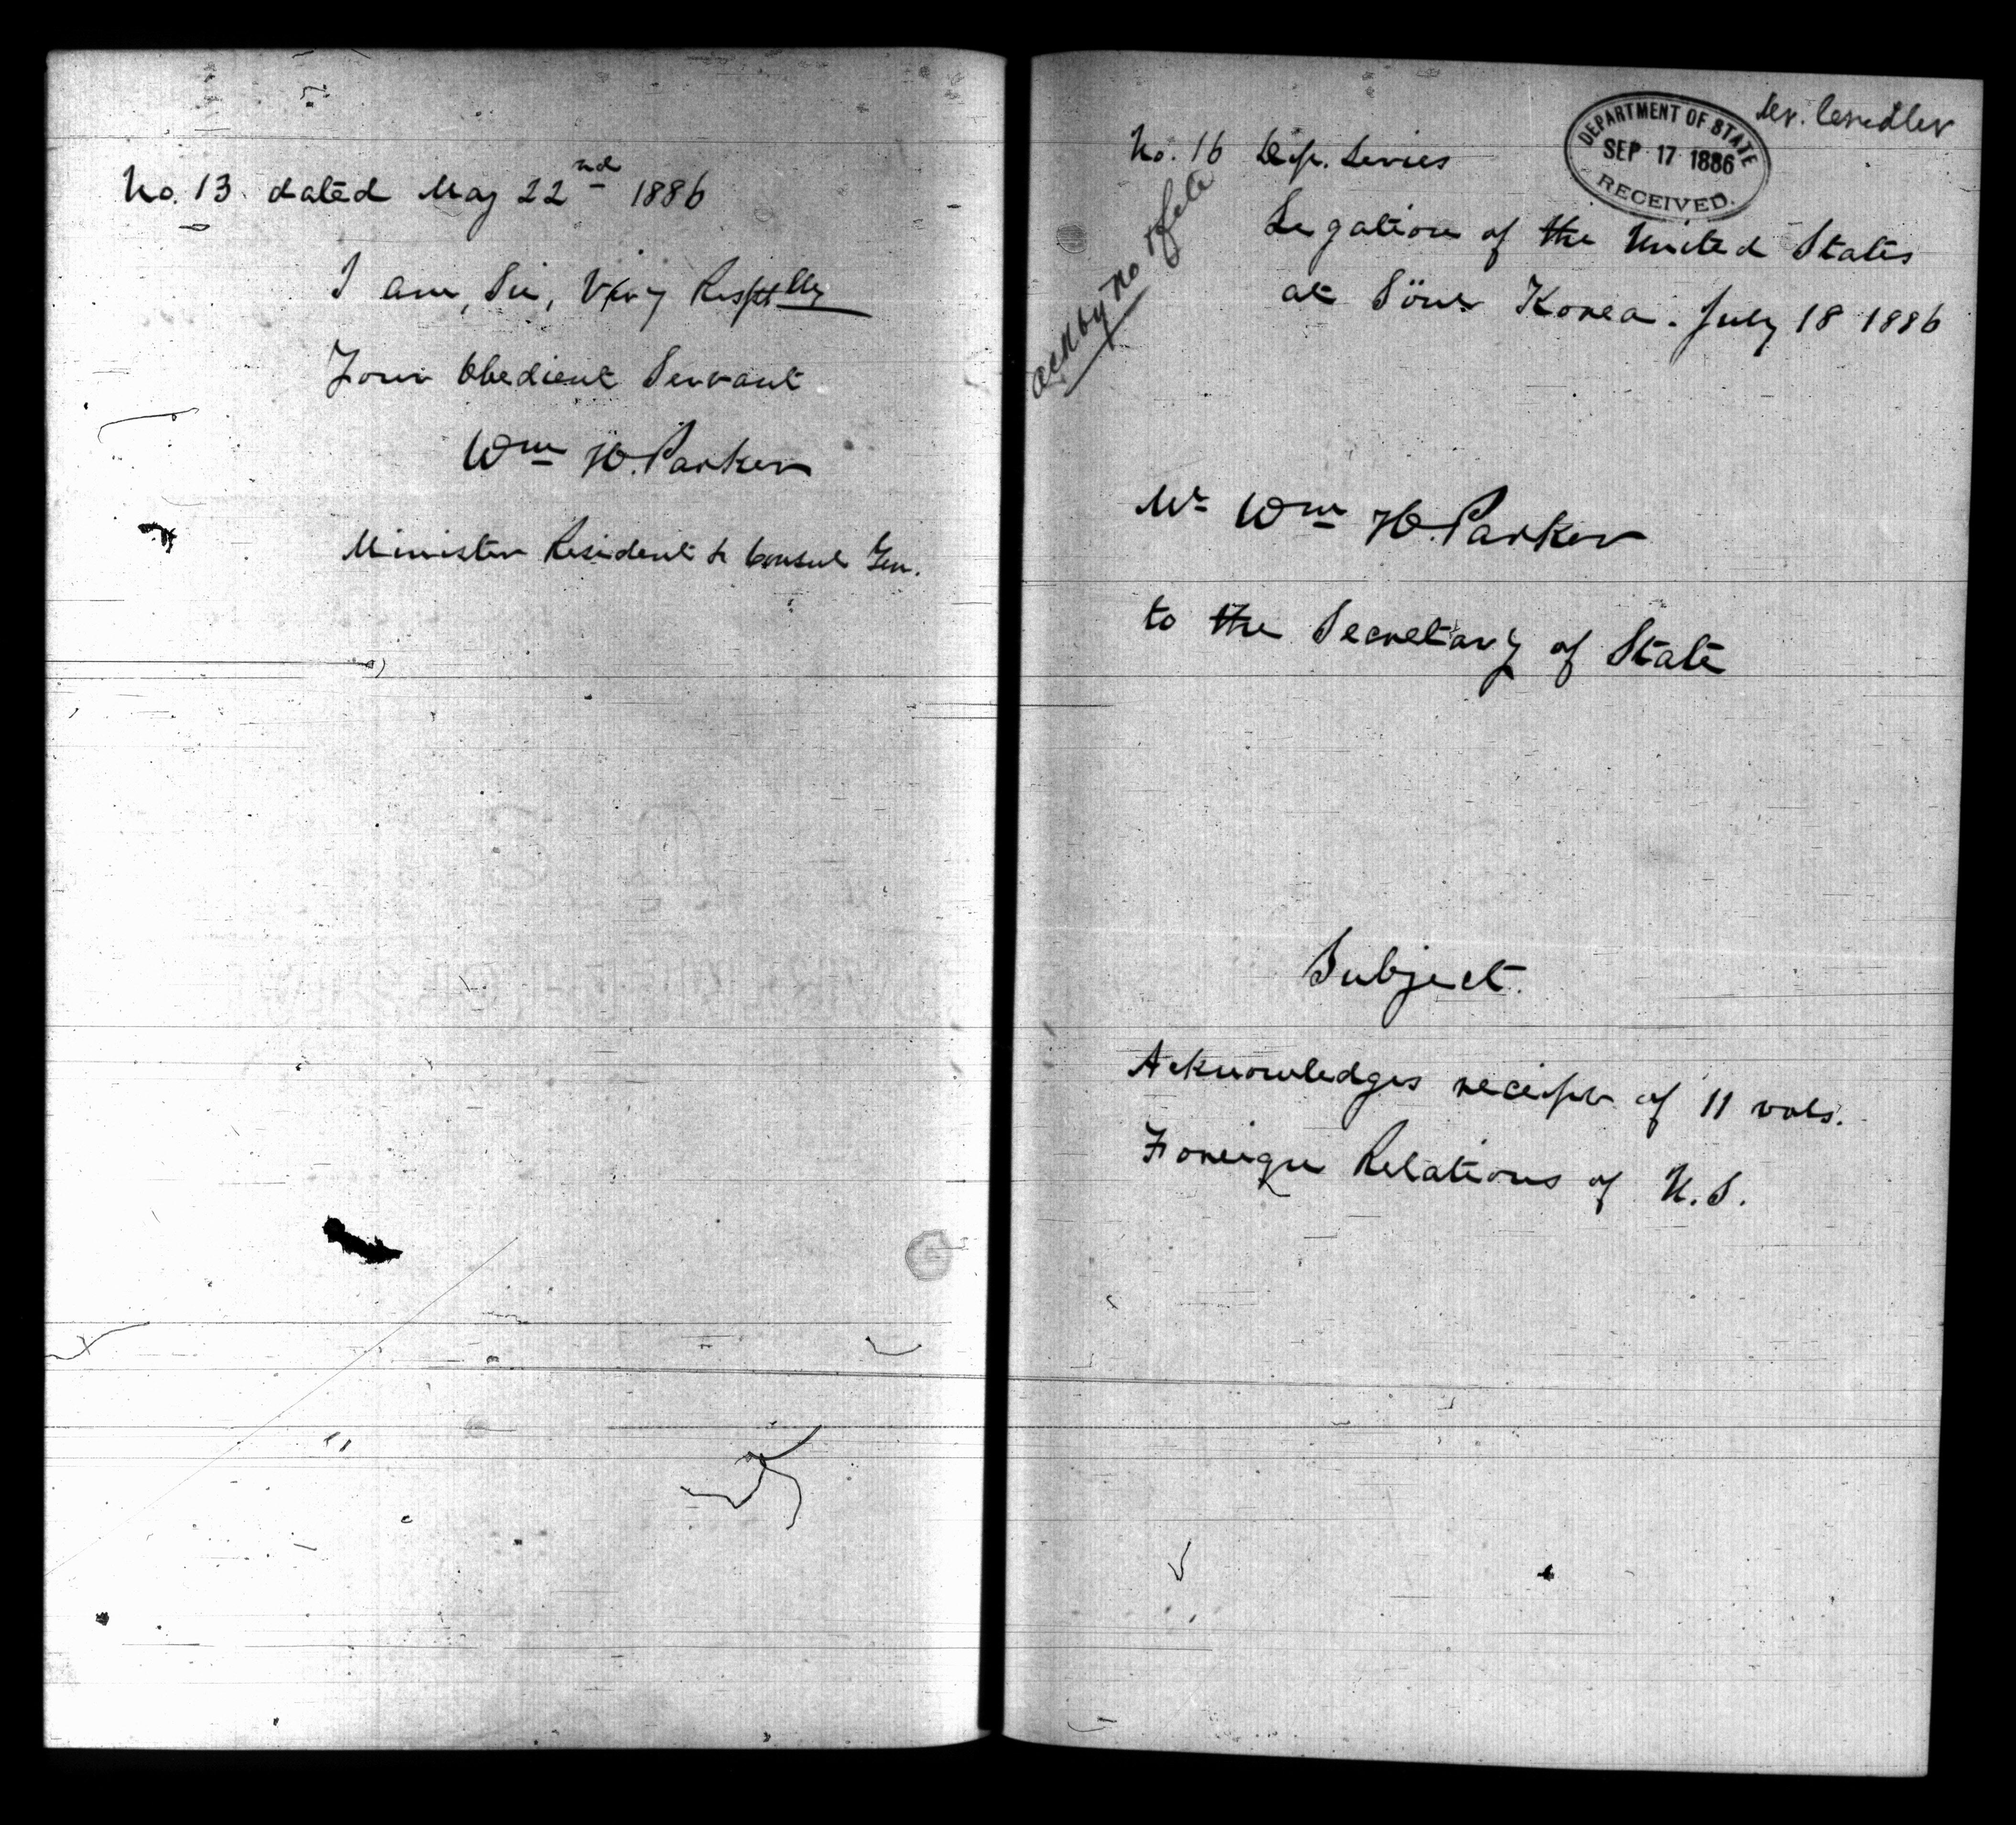 No. 13. dated May 22nd 1886
I am, Sir, Very Resptlly
Your Obedient Servant
Wm H. Parker
Minister Resident & Consul Gen.
DEPARTMENT OF STATE
SEP 17 1886
RECEIVED.
No. 16 Dip. Series
Legation of the United States
at Söul Korea. July 18 1886
ack by no
Mr Wm H. Parker
to the Secretary of State
Subject.
Acknowledges receipt of 11 vols.
Foreign Relations of U.S.